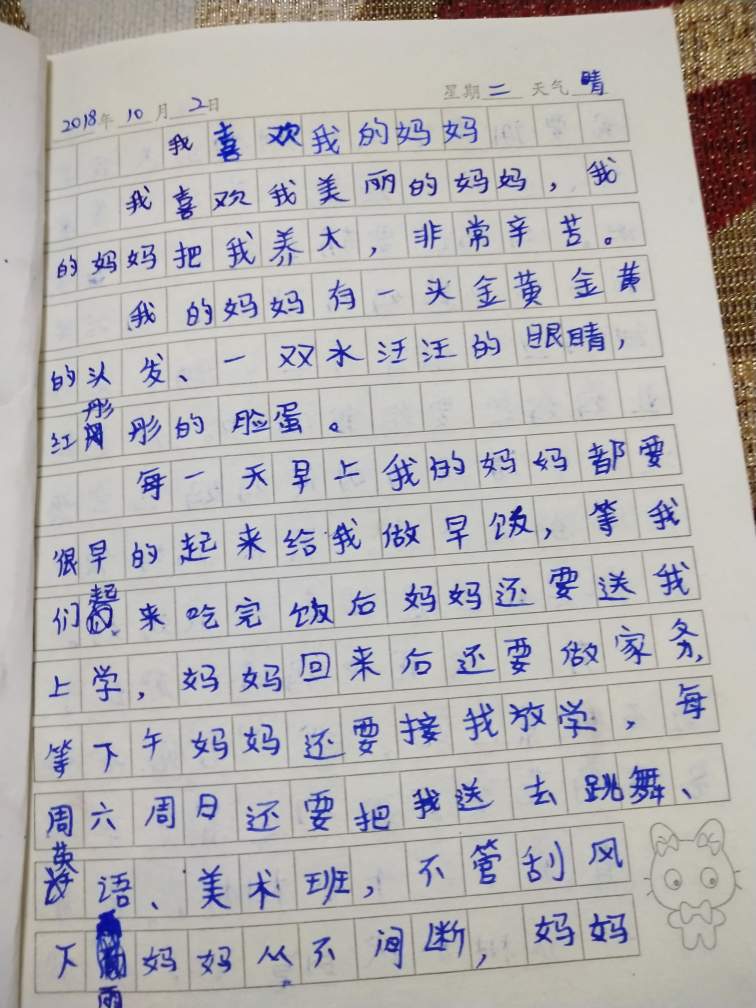 2018年10月2日 星期二 天气晴
我喜欢我的妈妈
我喜欢我美丽的妈妈，我
的妈妈把我养大，非常辛苦。
我的妈妈有一头金黄金黄
的头发、一双水汪汪的眼睛，
红彤彤的脸蛋。
每一天早上我的妈妈都要
很早的起来给我做早饭，等我
们起来吃完饭后妈妈还要送我
上学，妈妈回来后还要做家务，
等下午妈妈还要接我放学，每
周六周日还要把我送去跳舞、
英语、美术班，不管刮风
下雨妈妈从不间断，妈妈